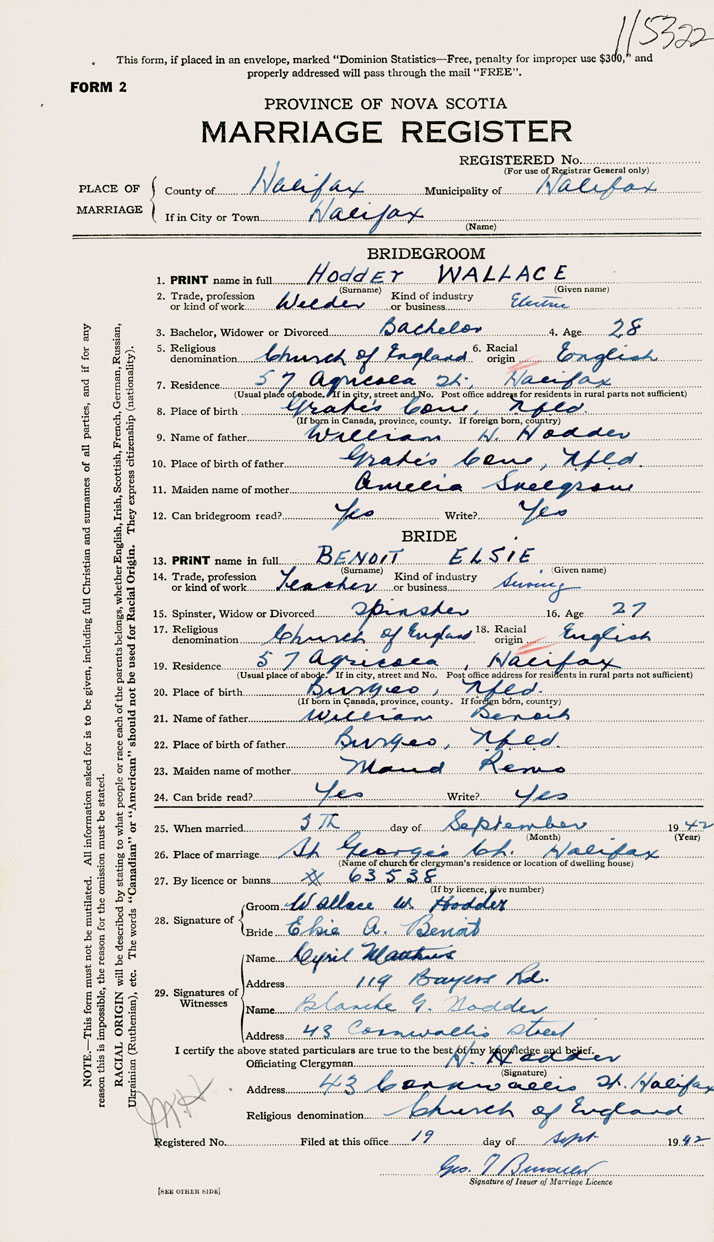 115322
This form, if placed in an envelope, marked "Dominion Statistics—Free, penalty for improper use $300," and
properly addressed will pass through the mail "FREE".
FORM 2
PROVINCE OF NOVA SCOTIA
MARRIAGE REGISTER
REGISTERED No.
(For use of Registrar General only)
PLACE OF MARRIAGE
County of Halifax Municipality of Halifax
If in City or Town Halifax
(Name)
BRIDEGROOM
1. PRINT name in full HODDER WALLACE
(Surname) (Given name)
2. Trade, profession or kind of work Welder Kind of industry or business Electric
3. Bachelor, Widower or Divorced Bachelor 4. Age 28
5. Religious denomination Church of England 6. Racial origin English
7. Residence 57 Agricola St., Halifax
(Usual place of abode. If in city, street and No. Post office address for residents in rural parts not sufficient)
8. Place of birth Grate's Cove, Nfld
(If born in Canada, province, county. If foreign born, country)
9. Name of father William H. Hodder
10. Place of birth of father Grate's Cove, Nfld.
11. Maiden name of mother Amelia Snelgrove
12. Can bridegroom read? Yes Write? Yes
BRIDE
13. PRINT name in full BENOIT ELSIE
(Surname) (Given name)
14. Trade, profession or kind of work Teacher Kind of industry or business
15. Spinster, Widow or Divorced Spinster 16. Age 27
17. Religious denomination Church of England 18. Racial origin English
19. Residence 57 Agricola, Halifax
(Usual place of abode. If in city, street and No. Post office address for residents in rural parts not sufficient)
20. Place of birth Burgeo, Nfld.
(If born in Canada, province, county. If foreign born, country)
21. Name of father William Benoit
22. Place of birth of father Burgeo, Nfld.
23. Maiden name of mother Maud
24. Can bride read? Yes Write? Yes
25. When married 5th day of September 1942
(Month) (Year)
26. Place of marriage St George's Ch. Halifax
(Name of church or clergyman's residence or location of dwelling house)
27. By licence or banns # 63538
(If by licence, give number)
28. Signature of
Groom Wallace W. Hodder
Bride Elsie A. Benoit
29. Signatures of Witnesses
Name Cyril Matthews
Address 119 Bayers Rd.
Name Blanche G. Hodder
Address 43 Cornwallis Street
I certify the above stated particulars are true to the best of my knowledge and belief.
Officiating Clergyman H. Hodder
(Signature)
Address 43 Cornwallis St. Halifax
Religious denomination Church of England
Registered No. Filed at this office 19 day of Sept 1942
Geo.
Signature of Issuer of Marriage Licence
[SEE OTHER SIDE]
NOTE.—This form must not be mutilated. All information asked for is to be given, including full Christian and surnames of all parties, and if for any
reason this is impossible, the reason for the omission must be stated.
RACIAL ORIGIN will be described by stating to what people or race each of the parents belongs, whether English, Irish, Scottish, French, German, Russian,
Ukrainian (Ruthenian), etc. The words "Canadian" or "American" should not be used for Racial Origin. They express citizenship (nationality).